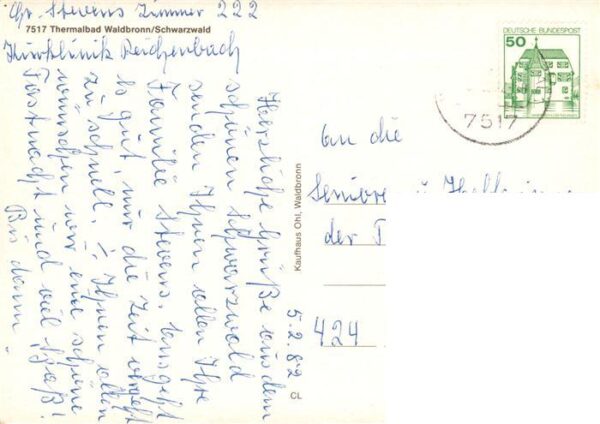 Gr. Stevens Zimmer 222
7517 Thermalbad Waldbronn/Schwarzwald
Kurklinik Reichenbach
Herzliche Grüße aus dem
schönen Schwarzwald
senden Ihnen allen Ihre
Familie Stevens. Uns geht
es gut nur die Zeit vergeht
zu schnell. Ihnen allen
wünschen wir eine schöne
Fastnacht und viel Spaß!
Bis dann
5.2.82
Kaufhaus Ohl, Waldbronn
CL
DEUTSCHE BUNDESPOST
50
7517
An die
der
424